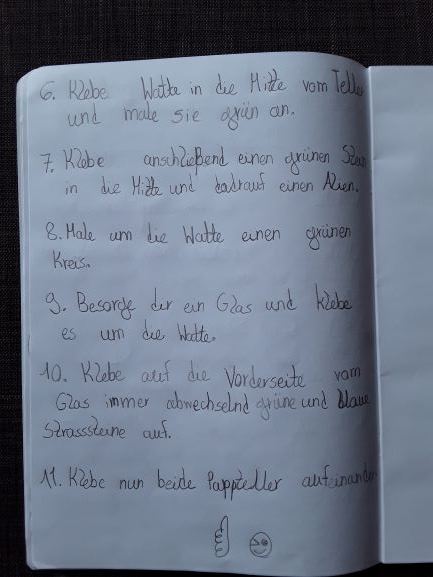 6. Klebe Watte in die Mitte vom Teller
und male sie grün an.
7. Klebe anschließend einen grünen Stein
in die Mitte und dadrauf einen Alien.
8. Male um die Watte einen grünen
Kreis.
9. Besorge dir ein Glas und klebe
es um die Watte.
10. Klebe auf die Vorderseite vom
Glas immer abwechselnd grüne und blaue
Strasssteine auf.
11. Klebe nun beide Pappteller aufeinander